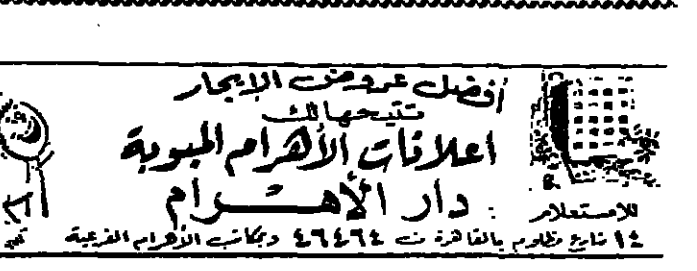 أفضل عروض الإيجار
تتيحها لك
اعلانات الأهرام المبوبة
دار الأهـــرام
للاستعلام :
١٤ شارع مظلوم بالقاهرة ت ٤٦٤٦٤ ومكاتب الأهرام الفرعية